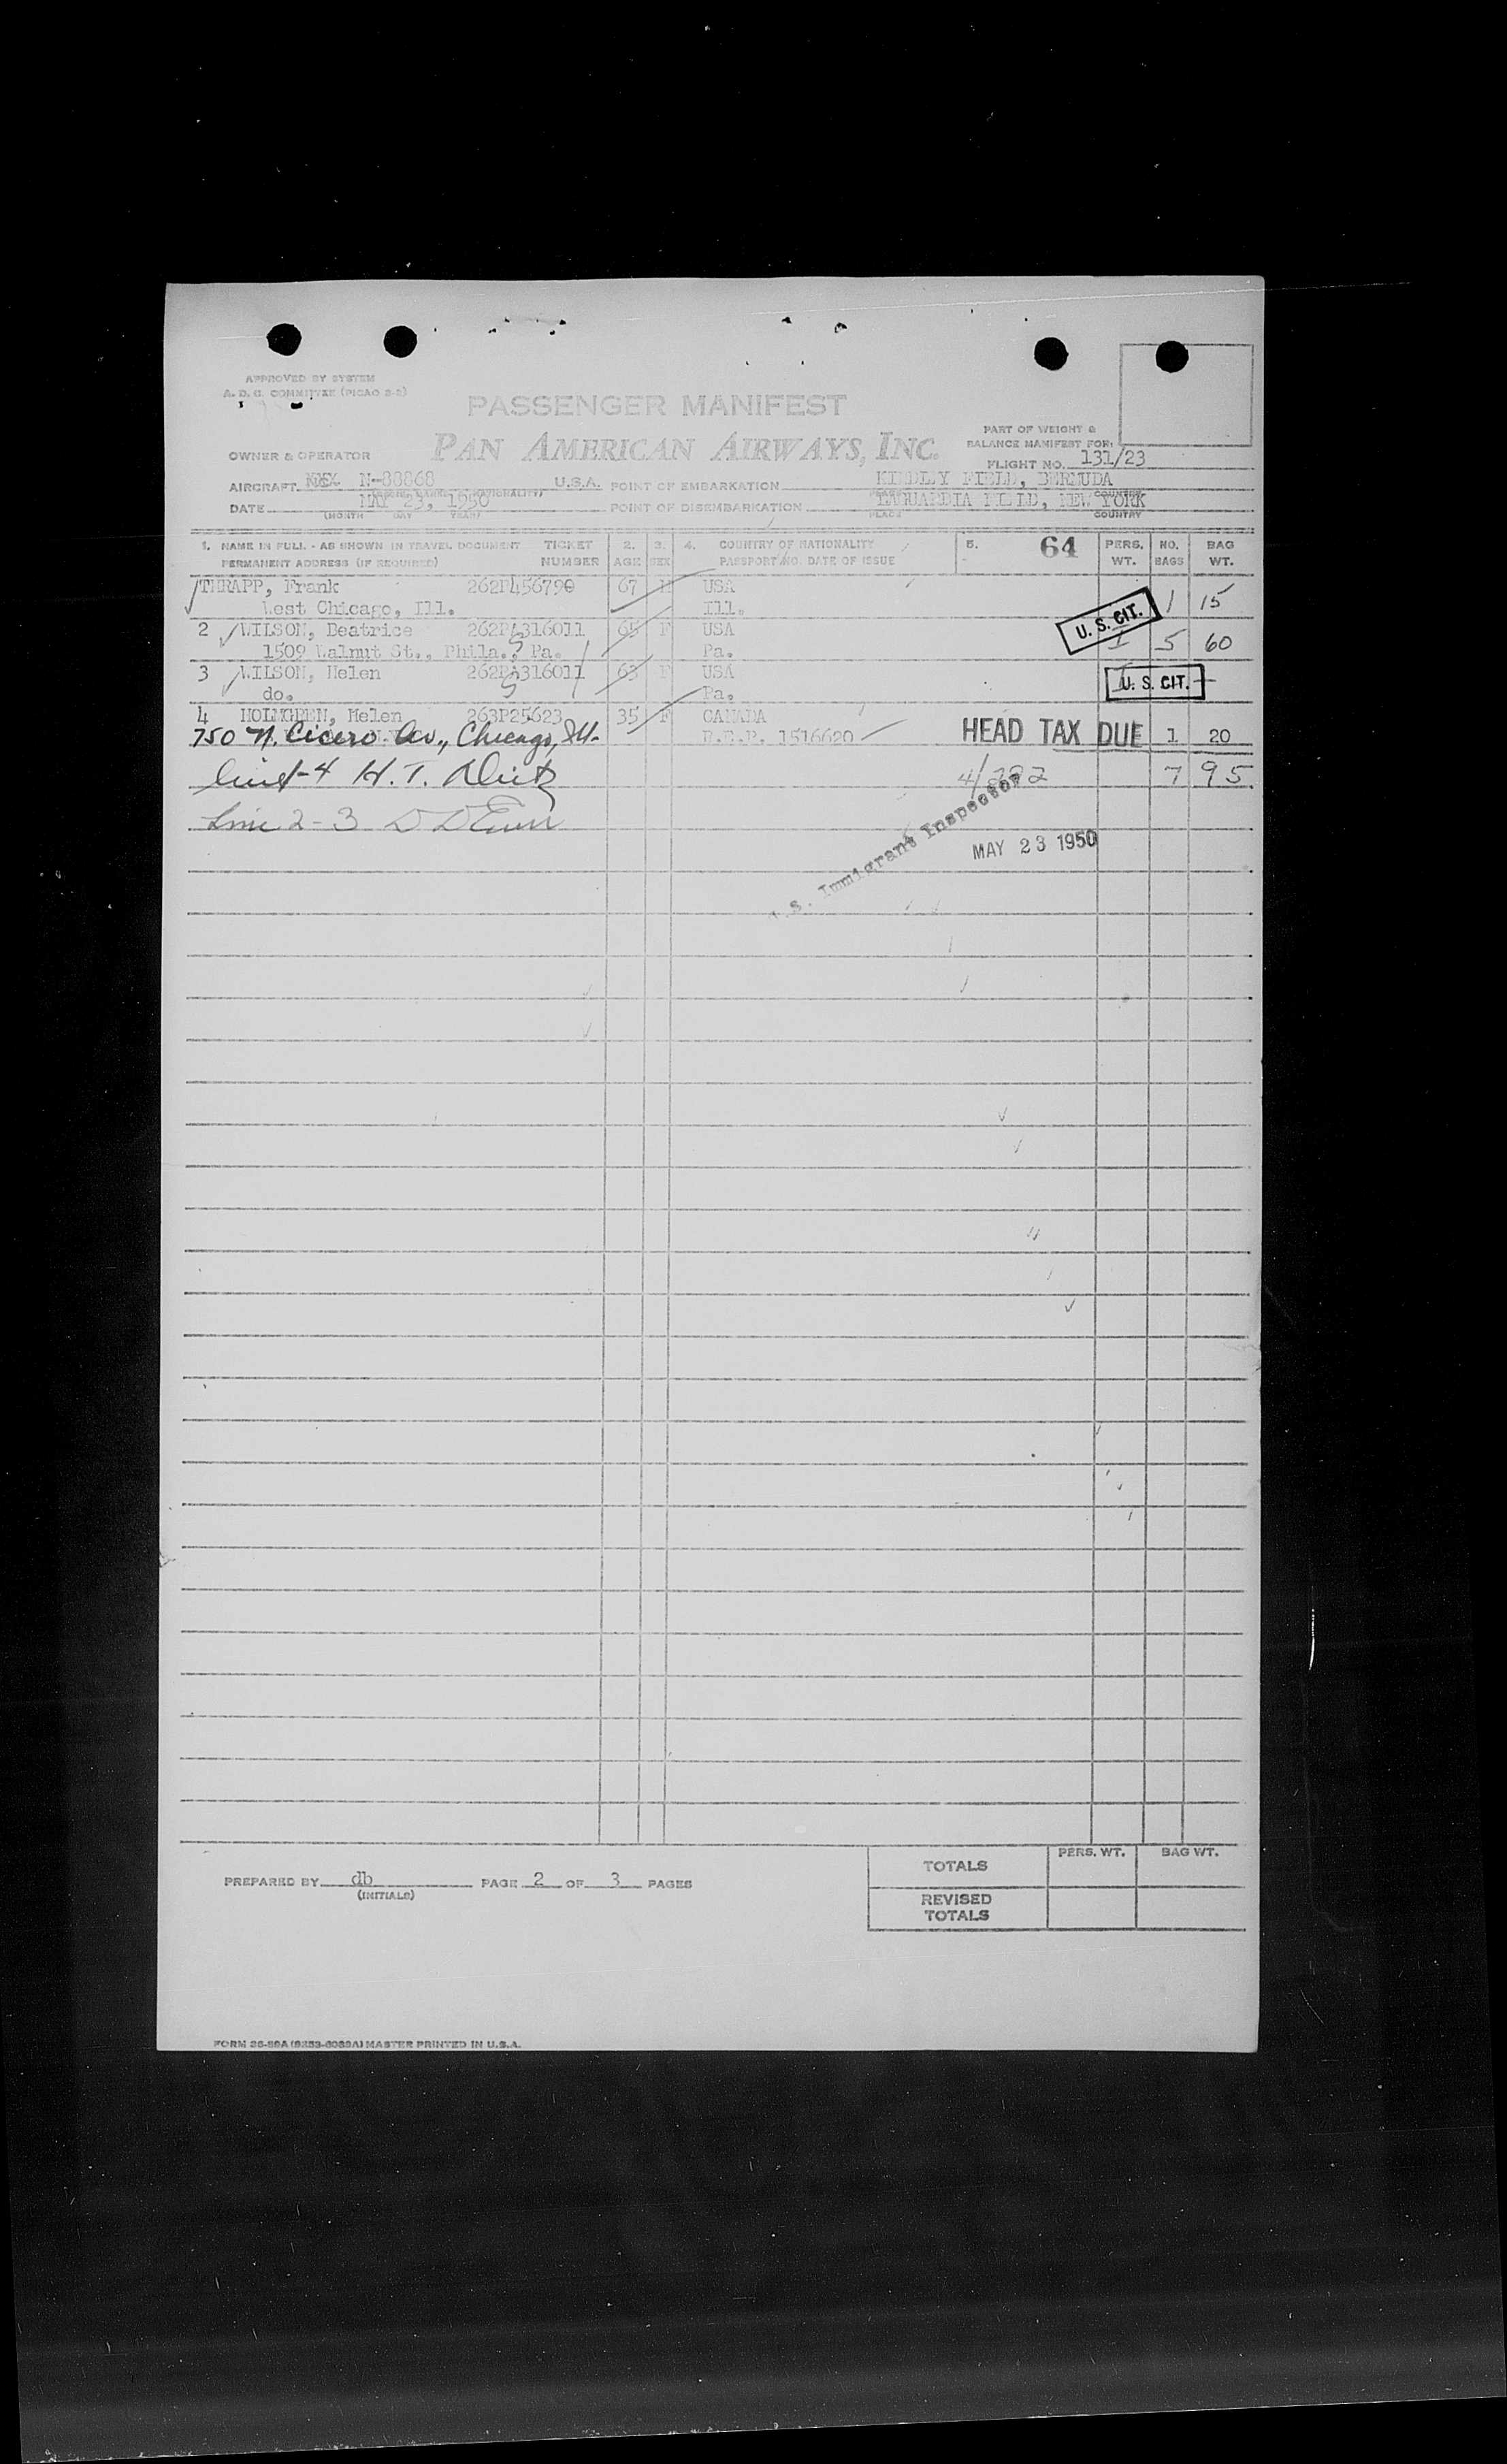 APPROVED BY SYSTEM
A. D. C. COMMITTEE (PICAO 2-2)
PASSENGER MANIFEST
PAN AMERICAN AIRWAYS, INC.
PART OF WEIGHT &
BALANCE MANIFEST FOR:
OWNER & OPERATOR
FLIGHT NO. 131/23
AIRCRAFT N-88868 U.S.A. POINT OF EMBARKATION KINDLEY FIELD, BERMUDA
DATE MAY 23, 1950 POINT OF DISEMBARKATION LAGUARDIA FIELD, NEW YORK
(MONTH DAY YEAR) PLACE COUNTRY
1. NAME IN FULL - AS SHOWN IN TRAVEL DOCUMENT TICKET 2. 3. 4. COUNTRY OF NATIONALITY 5. 64 PERS. NO. BAG
PERMANENT ADDRESS (IF REQUIRED) NUMBER AGE SEX PASSPORT NO. DATE OF ISSUE WT. BAGS WT.
THRAPP, Frank 262P456790 67 M USA
West Chicago, Ill. Ill. 1 15
2 WILSON, Beatrice 262P316011 65 F USA U. S. CIT.
1509 Walnut St., Phila., Pa. Pa. 5 60
3 WILSON, Helen 262P316011 63 F USA
do. Pa. U. S. CIT.
4 HOLMGREN, Helen 263P25623 35 F CANADA
750 N. Cicero Av., Chicago, Ill. R.E.P. 1516620 HEAD TAX DUE 1 20
Line 4 H. T. 4/292 7 95
Line 2-3
U.S. Immigrant Inspector
MAY 23 1950
TOTALS PERS. WT. BAG WT.
PREPARED BY db PAGE 2 OF 3 PAGES
(INITIALS)
REVISED
TOTALS
MASTER PRINTED IN U.S.A.